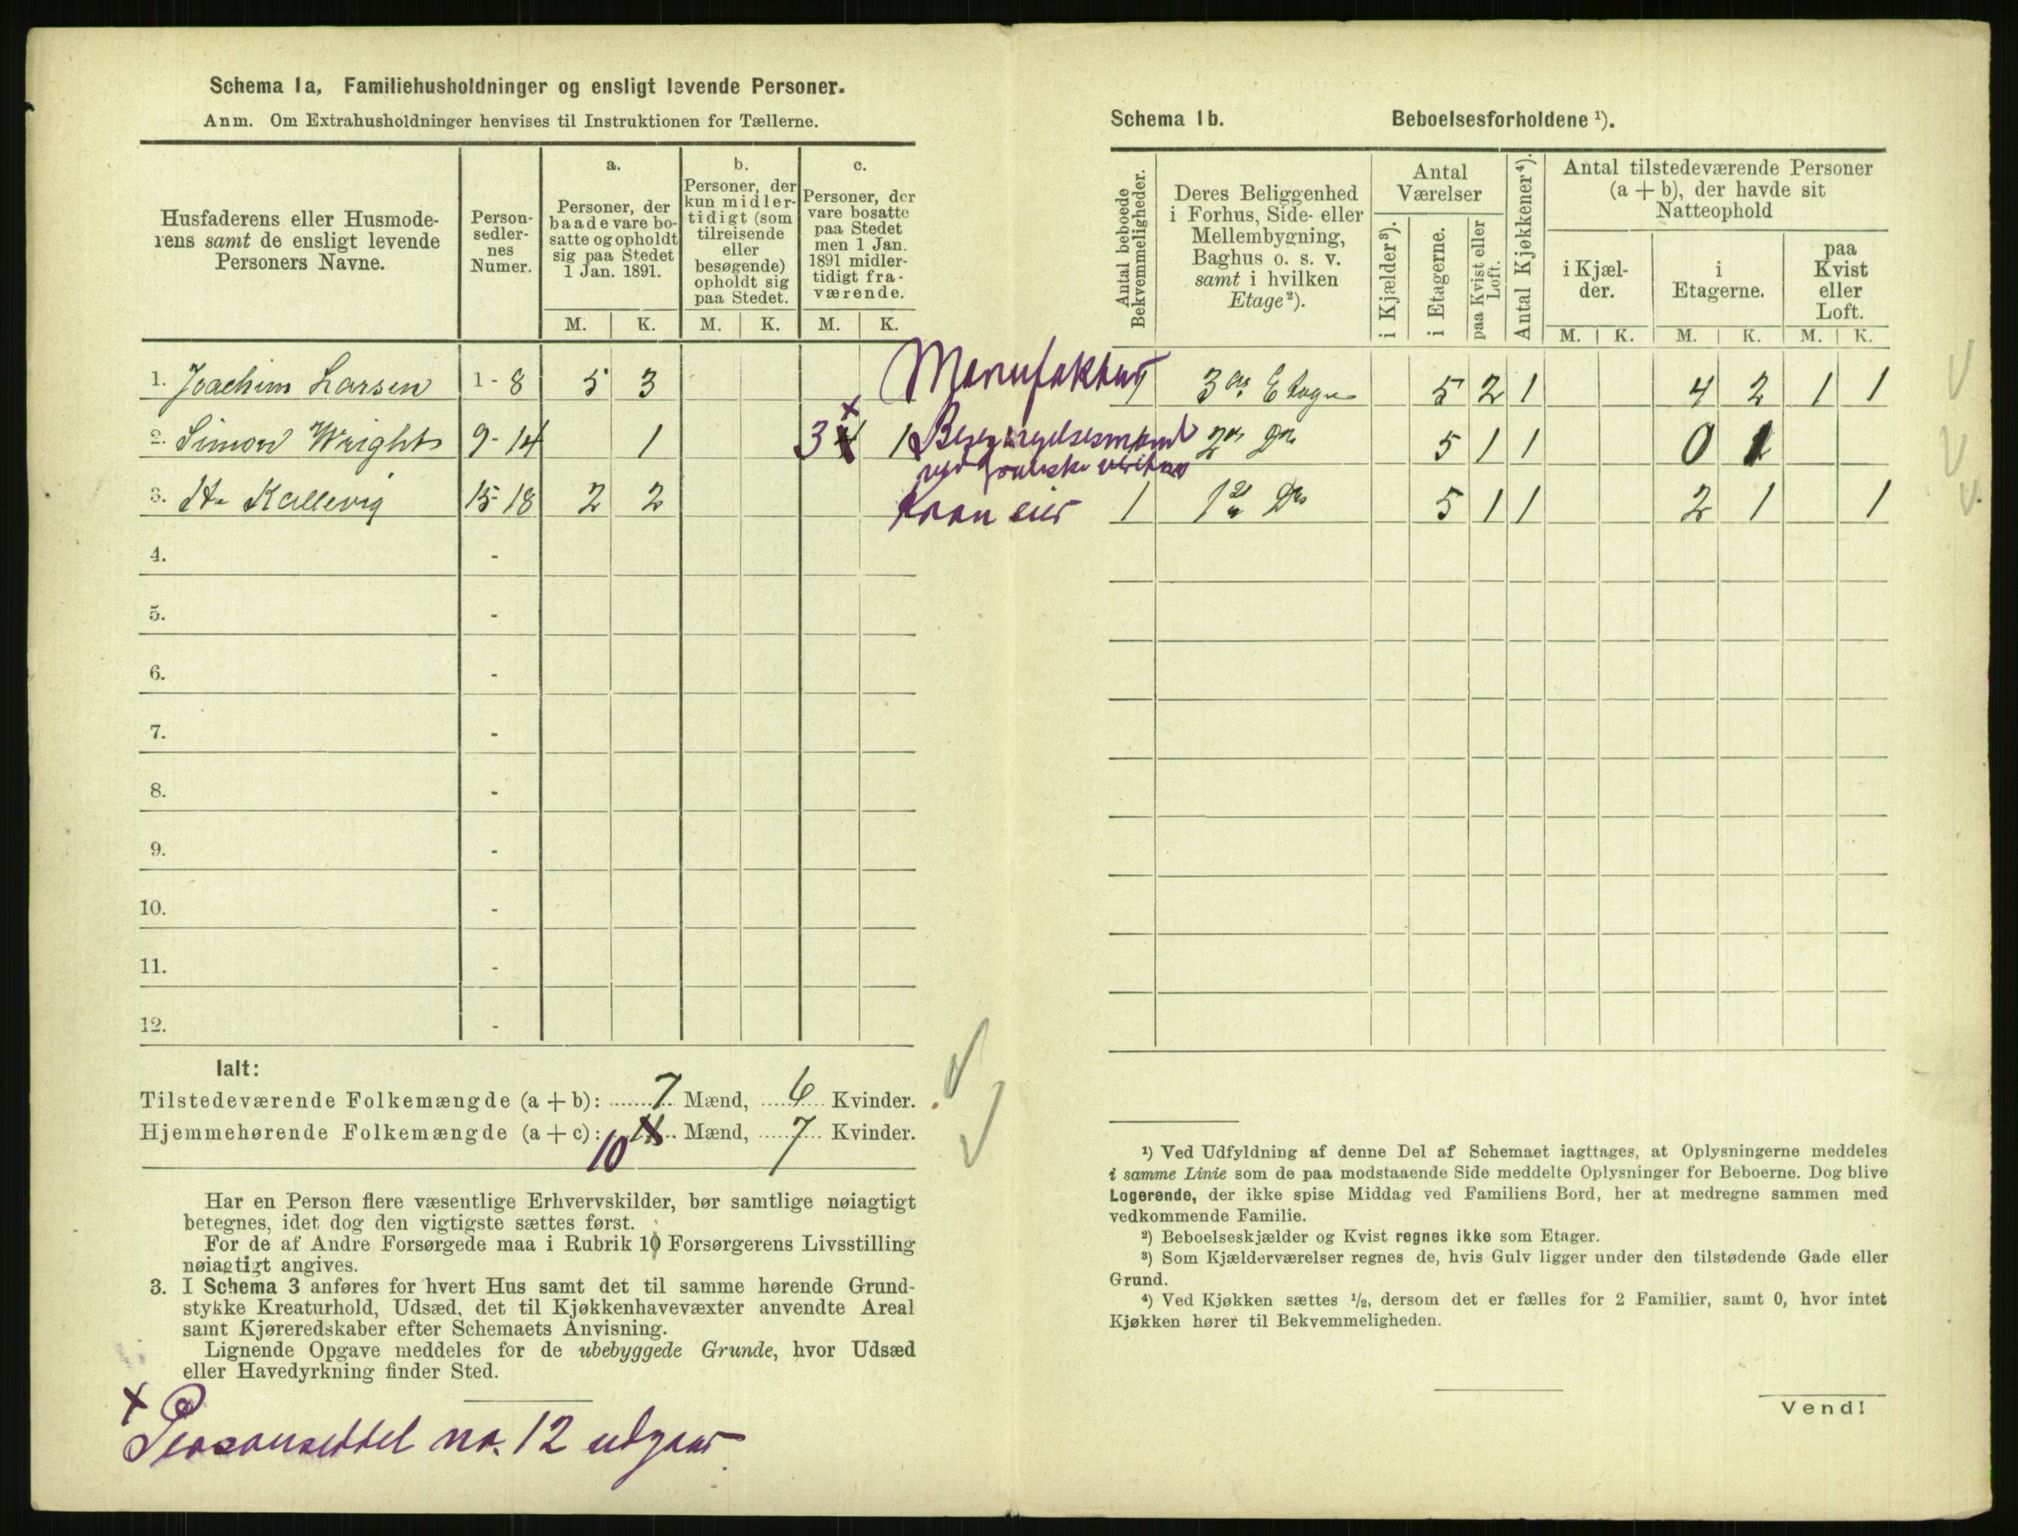 Schema 1a, Familiehusholdninger og ensligt levende Personer.
Anm. Om Extrahusholdninger henvises til Instruktionen for Tællerne.
Husfaderens eller Husmode-
rens samt de ensligt levende
Personers Navne.
Person-
sedler-
nes
Numer.
a.
Personer, der
baade vare bo-
satte og opholdt
sig paa Stedet
1 Jan. 1891.
b.
Personer, der
kun midler-
tidigt (som
tilreisende
eller
besøgende)
opholdt sig
paa Stedet.
c.
Personer, der
vare bosatte
paa Stedet
men 1 Jan.
1891 midler-
tidigt fra-
værende.
M. K. M. K. M. K.
1. Joachim Larsen 1 - 8 5 3 Manufaktur
2. Simon Wright 9 - 14 1 3 x 1 Besigtigelsesmand
ved
3. Kallevig 15 - 18 2 2 Kran eier
4. -
5. -
6. -
7. -
8. -
9. -
10. -
11. -
12. -
Ialt:
Tilstedeværende Folkemængde (a + b): 7 Mænd, 6 Kvinder.
Hjemmehørende Folkemængde (a + c): 10 11 Mænd, 7 Kvinder.
Har en Person flere væsentlige Erhvervskilder, bør samtlige nøiagtigt
betegnes, idet dog den vigtigste sættes først.
For de af Andre Forsørgede maa i Rubrik 10 Forsørgerens Livsstilling
nøiagtigt angives.
3. I Schema 3 anføres for hvert Hus samt det til samme hørende Grund-
stykke Kreaturhold, Udsæd, det til Kjøkkenhavevæxter anvendte Areal
samt Kjøreredskaber efter Schemaets Anvisning.
Lignende Opgave meddeles for de ubebyggede Grunde, hvor Udsæd
eller Havedyrkning finder Sted.
x
Personseddel no. 12 udgaar
Schema 1b. Beboelsesforholdene ¹).
Antal beboede
Bekvemmeligheder.
Deres Beliggenhed
i Forhus, Side- eller
Mellembygning,
Baghus o. s. v.
samt i hvilken
Etage²).
Antal
Værelser
i Kjælder³).
i Etagerne.
paa Kvist eller
Loft.
Antal Kjøkkener⁴).
Antal tilstedeværende Personer
(a + b), der havde sit
Natteophold
i Kjæl-
der.
i
Etagerne.
paa
Kvist
eller
Loft.
M. K. M. K. M. K.
1 3die Etage 5 2 1 4 2 1 1
2den Do 5 1 1 0 1
1 1ste Do 5 1 1 2 1 1
¹) Ved Udfyldning af denne Del af Schemaet iagttages, at Oplysningerne meddeles
i samme Linie som de paa modstaaende Side meddelte Oplysninger for Beboerne. Dog blive
Logerende, der ikke spise Middag ved Familiens Bord, her at medregne sammen med
vedkommende Familie.
²) Beboelseskjælder og Kvist regnes ikke som Etager.
³) Som Kjælderværelser regnes de, hvis Gulv ligger under den tilstødende Gade eller
Grund.
⁴) Ved Kjøkken sættes ¹/₂, dersom det er fælles for 2 Familier, samt 0, hvor intet
Kjøkken hører til Bekvemmeligheden.
Vend!